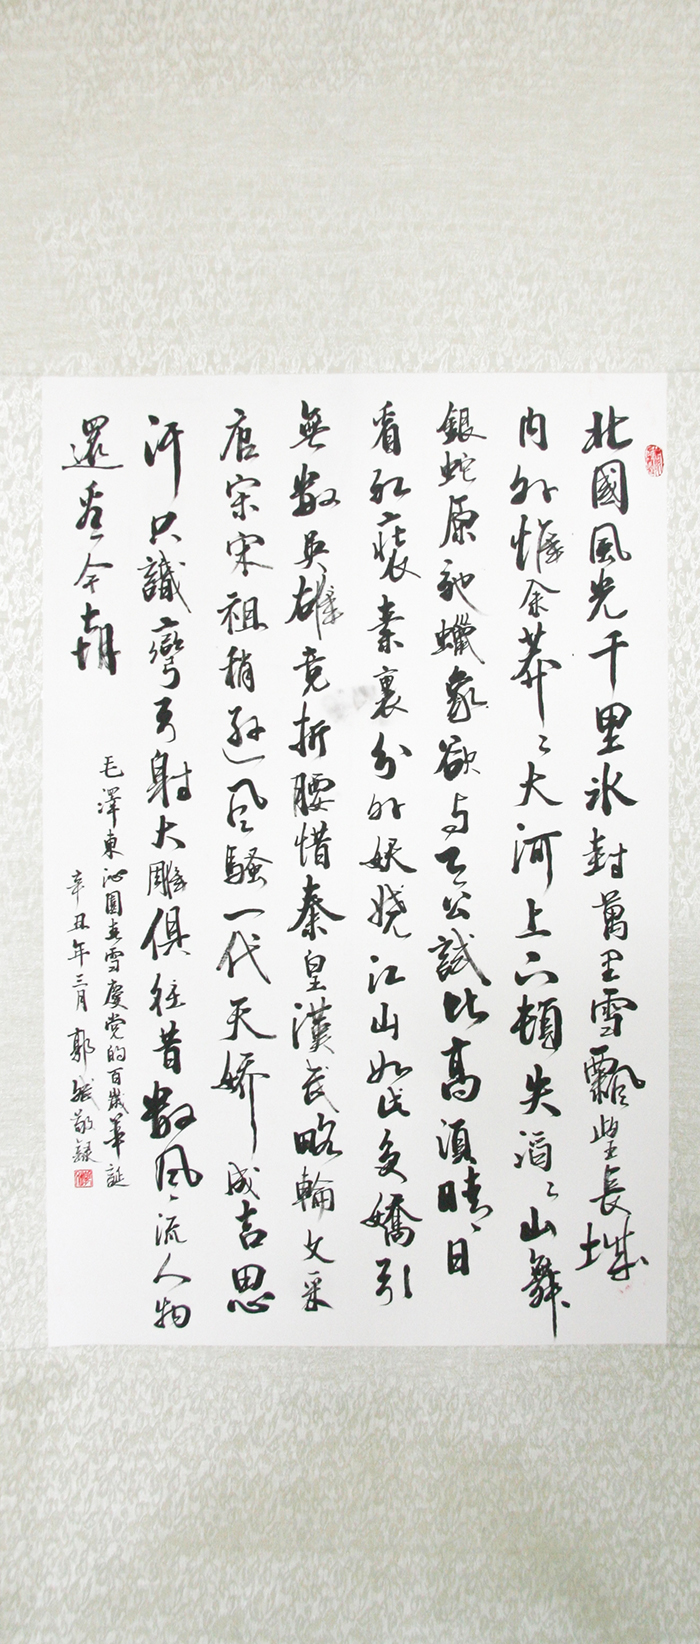 北國風光千里冰封萬里雪飄望長城
内外惟余莽〻大河上下頓失滔〻山舞
銀蛇原馳蠟象欲与天公試比高須晴日
看紅裝素裹分外妖嬈江山如此多嬌引
無數英雄竞折腰惜秦皇漢武略輸文采
唐宗宋祖稍遜风騷一代天嬌成吉思
汗只識彎弓射大雕俱往昔數风〻流人物
還看今朝
毛澤東沁園春雪慶党的百歲華誕
辛丑年三月郭敬錄